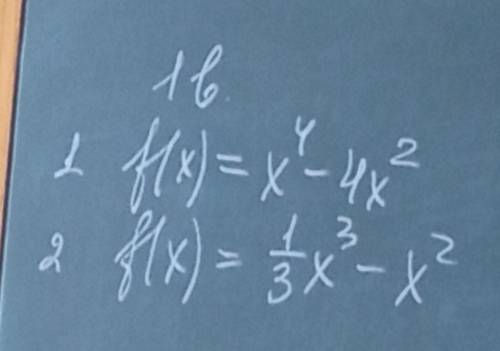 1 в.
1 f(x) = x⁴ - 4x²
2 f(x) = 1/3 x³ - x²